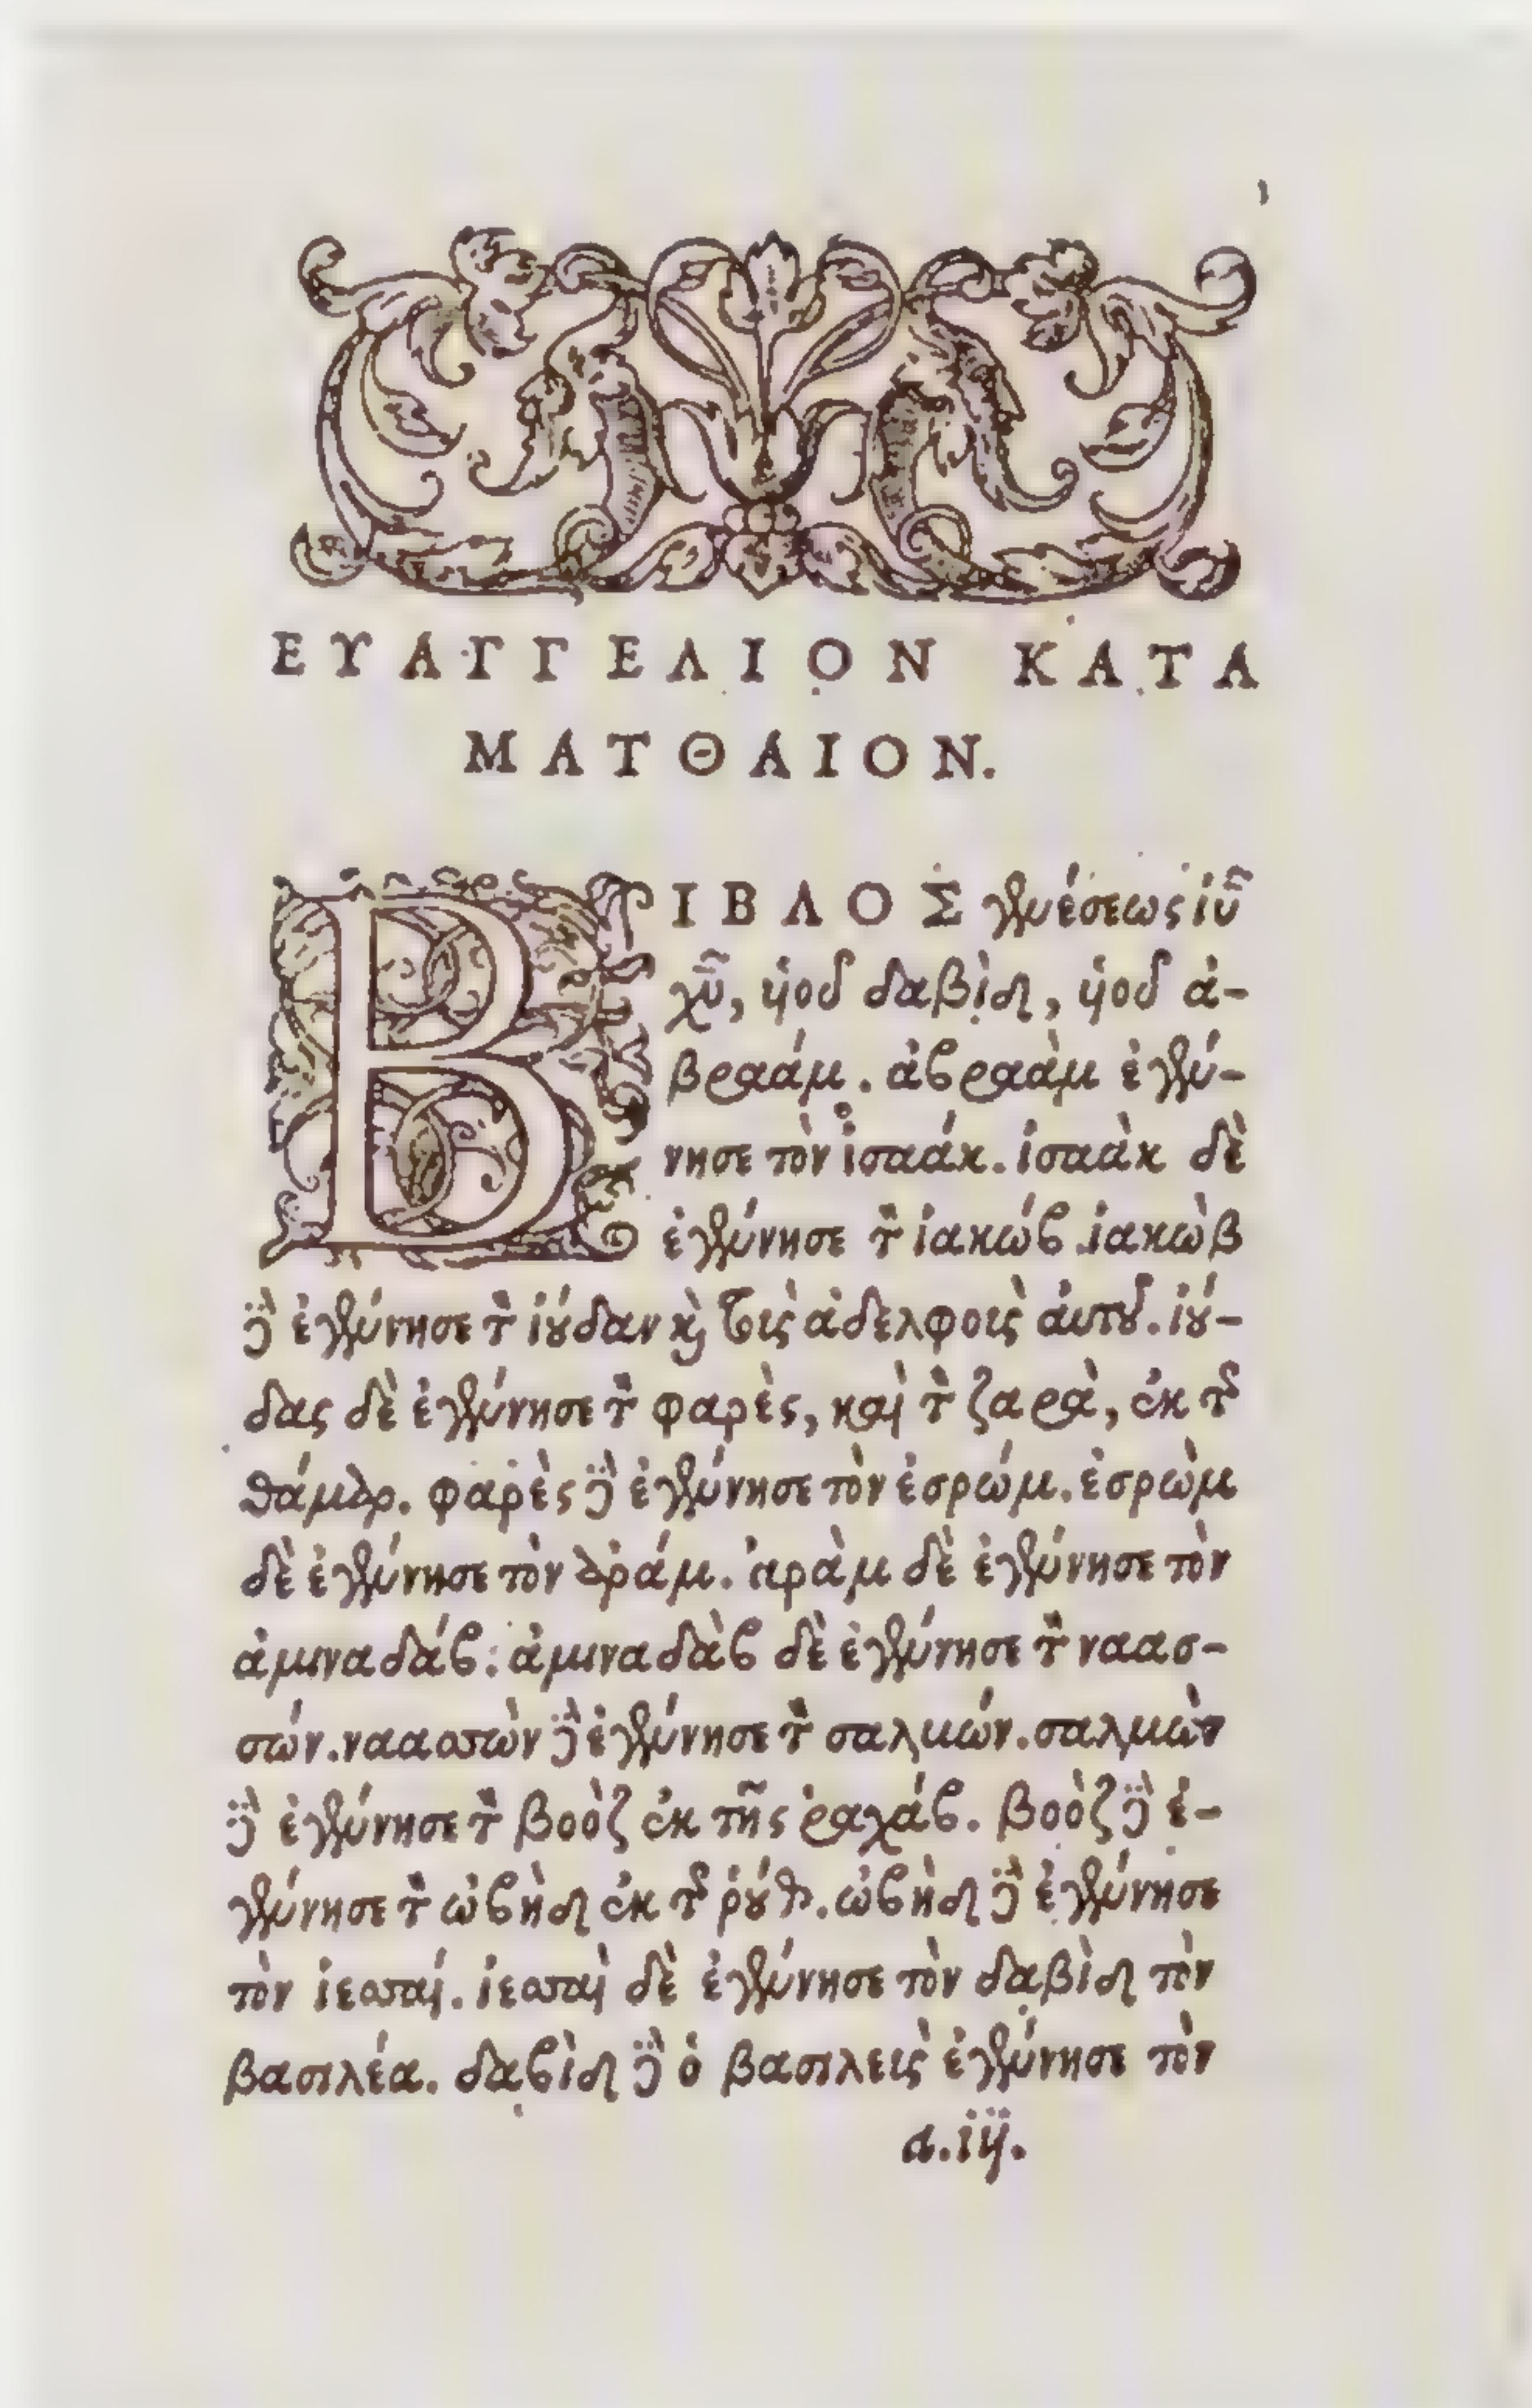 ΕΥΑΓΓΕΛΙΟΝ ΚΑΤΑ
ΜΑΤΘΑΙΟΝ.
ΒΙΒΛΟΣ γενέσεως ἰῦ
χῦ, ὑοῦ δαβὶδ, ὑοῦ ἀ-
βραάμ. ἀβραὰμ ἐγέν-
νησε τὸν ἰσαάκ. ἰσαὰκ δὲ
ἐγέννησε τὸν ἰακώβ. ἰακὼβ
δὲ ἐγέννησε τὸν ἰούδαν καὶ τοὺς ἀδελφοὺς ἀυτοῦ. ἰού-
δας δὲ ἐγέννησε τὸν φαρὲς, καὶ τὸν ζαρὰ, ἐκ τῆς
θάμαρ. φαρὲς δὲ ἐγέννησε τὸν ἐσρώμ. ἐσρὼμ
δὲ ἐγέννησε τὸν ἀράμ. ἀρὰμ δὲ ἐγέννησε τὸν
ἀμιναδάβ. ἀμιναδὰβ δὲ ἐγέννησε τὸν ναασ-
σών. ναασσὼν δὲ ἐγέννησε τὸν σαλμών. σαλμὼν
δὲ ἐγέννησε τὸν βοὸζ ἐκ τῆς ῥαχάβ. βοὸζ δὲ ἐ-
γέννησε τὸν ὠβὴδ ἐκ τῆς ῥούθ. ὠβὴδ δὲ ἐγέννησε
τὸν ἰεσσαί. ἰεσσαὶ δὲ ἐγέννησε τὸν δαβὶδ τὸν
βασιλέα. δαβὶδ δὲ ὁ βασιλεὺς ἐγέννησε τὸν
a.iij.